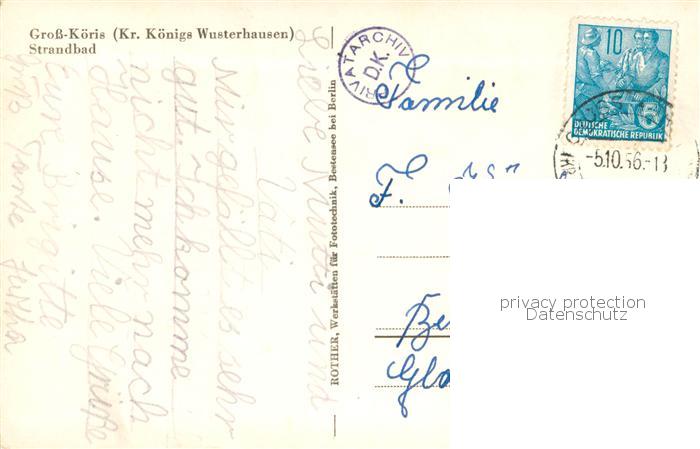 Groß-Köris (Kr. Königs Wusterhausen)
Strandbad
Liebe Mutti und
Vati
Mir gefällt es sehr
gut. Ich komme
nicht mehr nach
Hause. Viele Grüße
Eure Brigitte
ROTHER, Werkstätten für Fototechnik, Bestensee bei Berlin
PRIVATARCHIV
D.K.
Familie
F.
10
DEUTSCHE
DEMOKRATISCHE REPUBLIK
-5.10.56.-18
privacy protection
Datenschutz